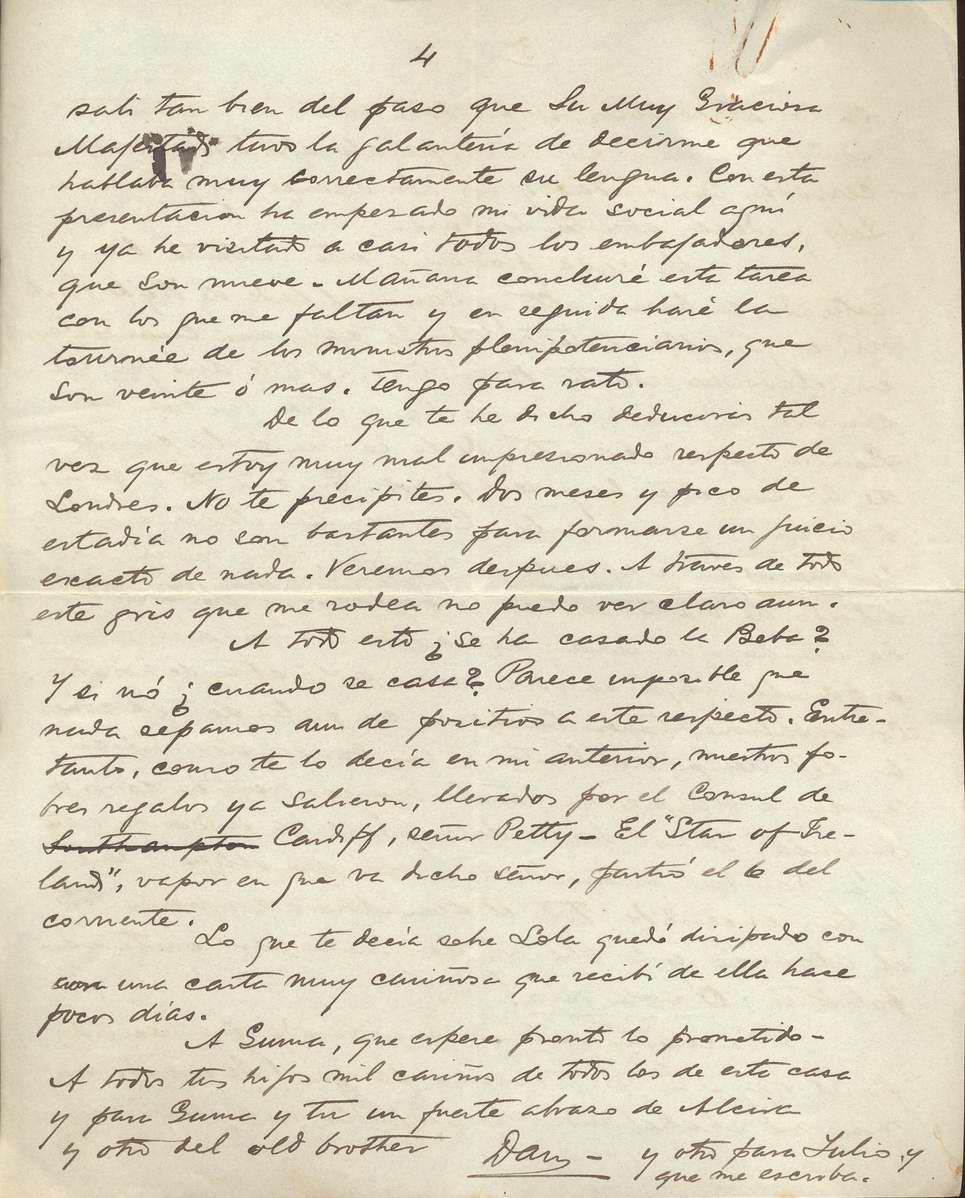 4
salí tan bien del paso que Su Muy Graciosa
Majestad tuvo la galantería de decirme que
hablaba muy correctamente su lengua. Con esta
presentacion ha empezado mi vida social aquí
y ya he visitado a casi todos los embajadores,
que son nueve. Mañana concluiré esta tarea
con los que me faltan y en seguida haré la
tournée de los ministros plenipotenciarios, que
son veinte ó mas. Tengo para rato.
De lo que te he dicho deducirás tal
vez que estoy muy mal impresionado respecto de
Londres. No te precipites. Dos meses y pico de
estadía no son bastantes para formarse un juicio
exacto de nada. Veremos despues. A traves de todo
este gris que me rodea no puedo ver claro aun.
A todo esto ¿se ha casado la Beba?
Y si nó ¿cuando se casa? Parece imposible que
nada sepamos aun de positivo a este respecto. Entre-
tanto, como te lo decía en mi anterior, nuestros po-
bres regalos ya salieron, llevados por el Consul de
Southampton Cardiff, señor Petty - El "Star of Ire-
land", vapor en que va dicho señor, partió el 6 del
corriente.
Lo que te decía sobre Lola quedó disipado con
una carta muy cariñosa que recibí de ella hace
pocos días.
A Guma, que espere pronto lo prometido -
A todos tus hijos mil cariños de todos los de esta casa
y para Guma y tu un fuerte abrazo de Alcira
y otro del old brother
y otro para Julio, y
que me escriba.